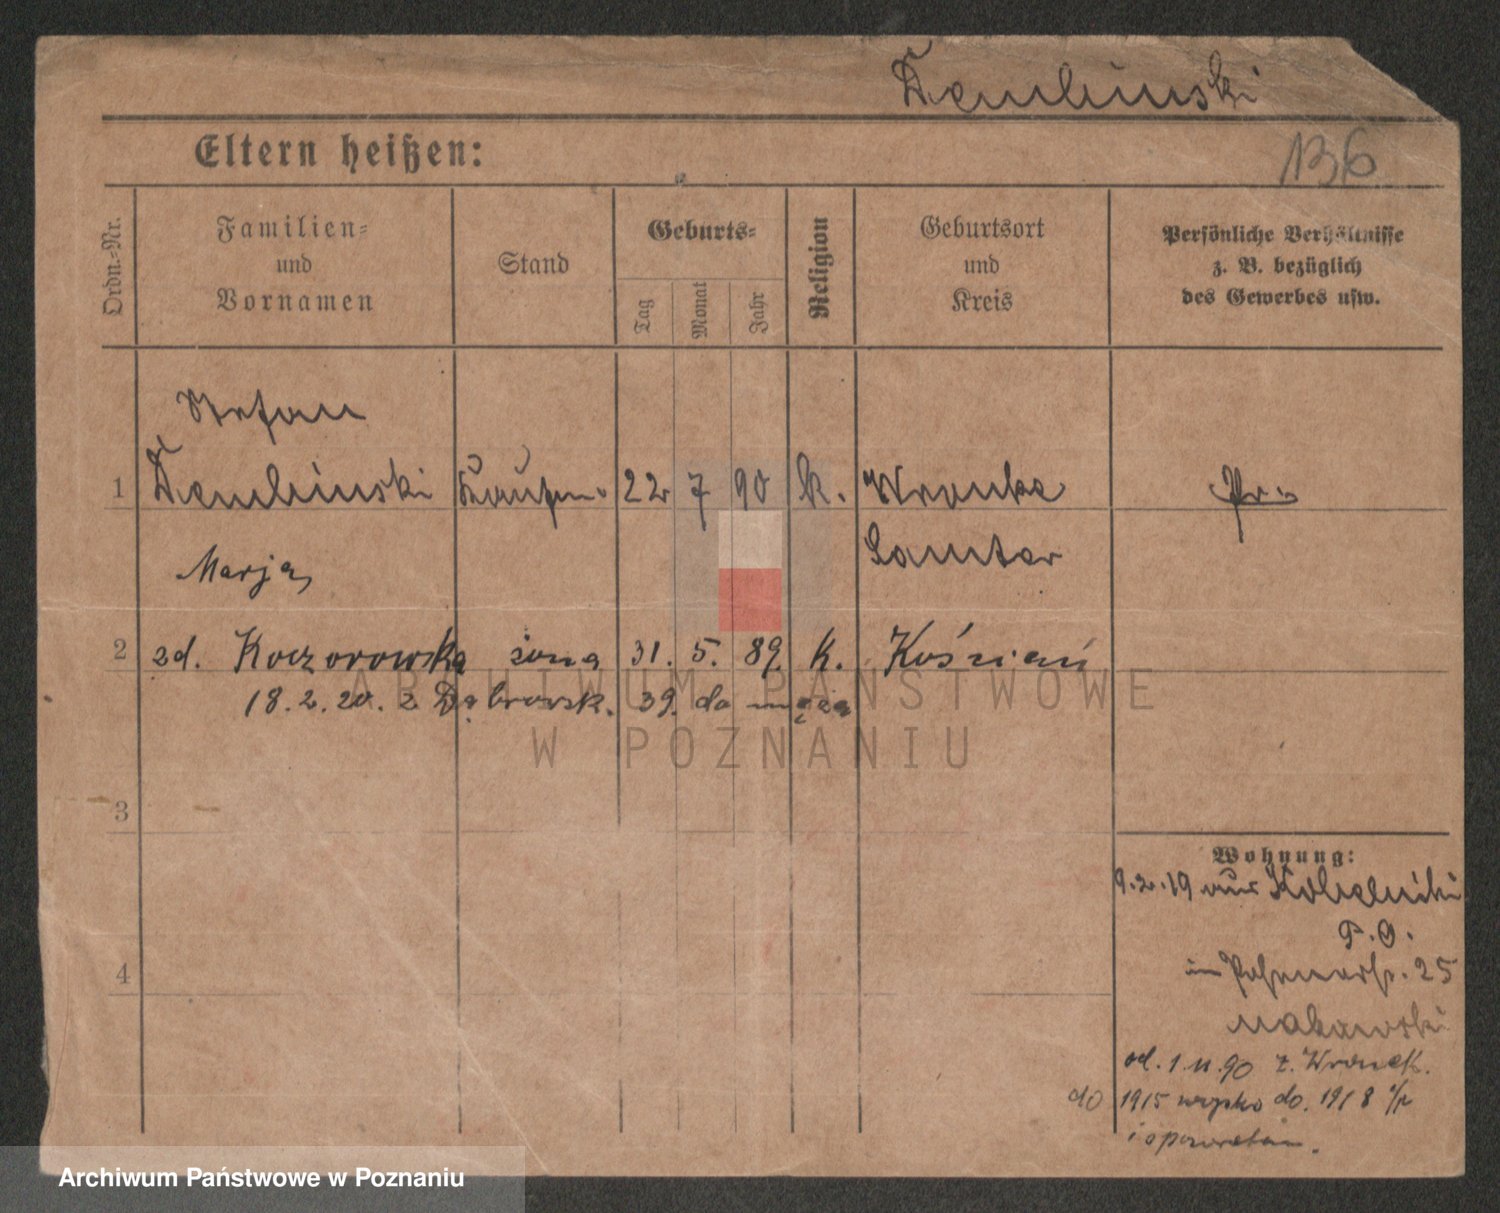 Dembinski
136
Eltern heißen:
Ordn.-Nr.
Familien-
und
Vornamen
Stand
Geburts-
Tag
Monat
Jahr
Religion
Geburtsort
und
Kreis
Persönliche Verhältnisse
z. B. bezüglich
des Gewerbes usw.
Stefan
1 Dembinski Kaufm. 22 7 90 k. Wronke Pr.
Samter
Marja
2 zd. Koczorowska żona 31. 5. 89. k. Kościan
18. 2. 20. z Dąbrowsk. 39. do męża
3
4
Wohnung:
9.2.19 aus Kobelnicki
P. O.
25
Makowski
od. 1. 11. 90 z. Wronek.
do 1915 wojsko do. 1918
ARCHIWUM PAŃSTWOWE
W POZNANIU
Archiwum Państwowe w Poznaniu